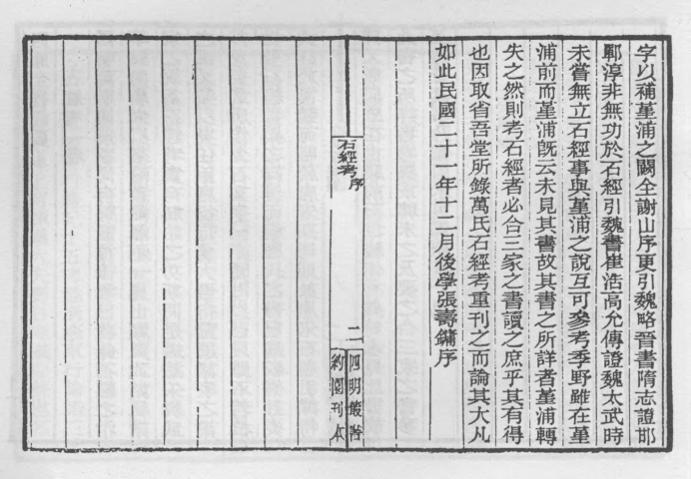 字以補堇浦之闕全謝山序更引魏略晉書隋志證邯
鄲淳非無功於石經引魏書崔浩高允傳證魏太武時
未嘗無立石經事與堇浦之說互可參考季野雖在堇
浦前而堇浦旣云未見其書故其書之所詳者堇浦轉
失之然則考石經者必合三家之書讀之庶乎其有得
也因取省吾堂所錄萬氏石經考重刊之而論其大凡
如此民國二十一年十二月後學張壽鏞序
石經考序
二
四明叢書
約園刊本